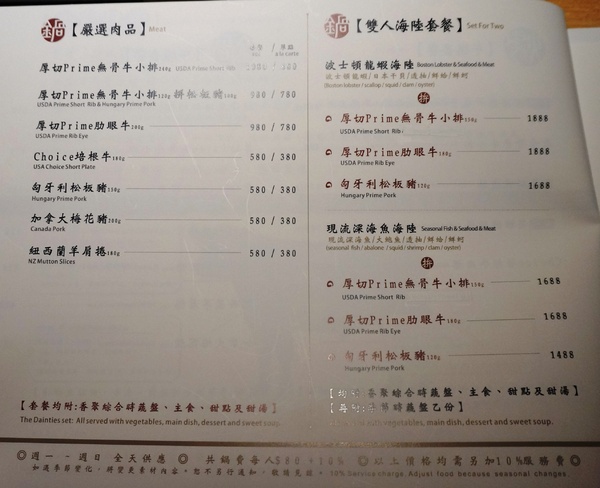 鍋【嚴選肉品】Meat
套餐 / 單點
à la carte
厚切Prime無骨牛小排 USDA Prime Short Rib
厚切Prime無骨牛小排120g 拼松板豬 980 / 780
USDA Prime Short Rib & Hungary Prime Pork
厚切Prime肋眼牛200g 980 / 780
USDA Prime Rib Eye
Choice培根牛180g 580 / 380
USA Choice Short Plate
匈牙利松板豬150g 580 / 380
Hungary Prime Pork
加拿大梅花豬200g 580 / 380
Canada Pork
紐西蘭羊肩捲180g 580 / 380
NZ Mutton Slices
【套餐均附:香聚綜合時蔬盤、主食、甜點及甜湯】
The Dainties set: All served with vegetables, main dish, dessert and sweet soup.
鍋【雙人海陸套餐】Set For Two
波士頓龍蝦海陸 Boston Lobster & Seafood & Meat
波士頓龍蝦/日本干貝/透抽/鮮蛤/鮮蚵
(Boston lobster / scallop / squid / clam / oyster)
拼
厚切Prime無骨牛小排150g 1888
USDA Prime Short Rib
厚切Prime肋眼牛180g 1888
USDA Prime Rib Eye
匈牙利松板豬120g 1688
Hungary Prime Pork
現流深海魚海陸 Seasonal Fish & Seafood & Meat
現流深海魚/大鮑魚/透抽/鮮蛤/鮮蚵
(seasonal fish / abalone / squid / shrimp / clam / oyster)
拼
厚切Prime無骨牛小排150g 1688
USDA Prime Short Rib
厚切Prime肋眼牛180g 1688
USDA Prime Rib Eye
匈牙利松板豬120g 1488
Hungary Prime Pork
【均附:香聚綜合時蔬盤、主食、甜點及甜湯】
【再附:季節時蔬盤乙份】
All served with vegetables, main dish, dessert and sweet soup.
◎週一 - 週日 全天供應 ◎ 共鍋費每人$80+10% ◎以上價格均需另加10%服務費◎
如遇季節變化,將變更素材內容,恕不另行通知,敬請見諒。10% Service charge. Adjust food because seasonal changes.